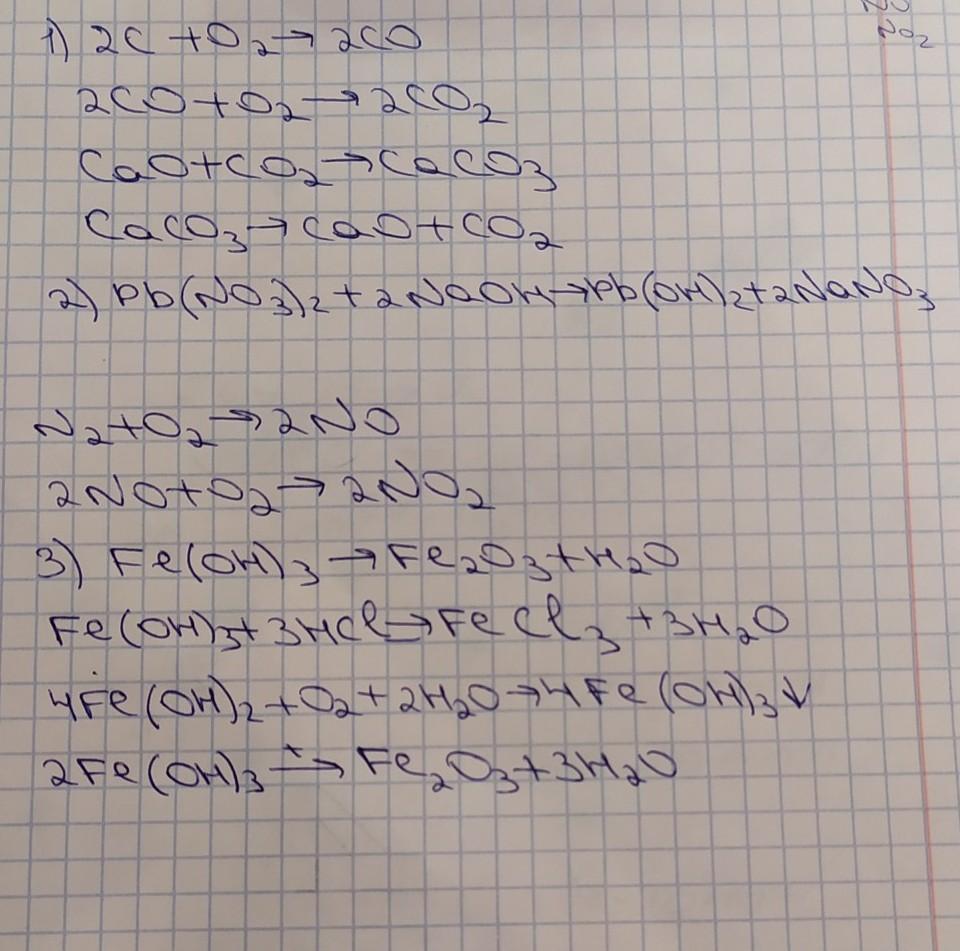 NO
NO₂
1) 2C + O₂ → 2CO
2CO + O₂ → 2CO₂
CaO + CO₂ → CaCO₃
CaCO₃ → CaO + CO₂
2) Pb(NO₃)₂ + 2NaOH → Pb(OH)₂ + 2NaNO₃
N₂ + O₂ → 2NO
2NO + O₂ → 2NO₂
3) Fe(OH)₃ → Fe₂O₃ + H₂O
Fe(OH)₃ + 3HCl → FeCl₃ + 3H₂O
4Fe(OH)₂ + O₂ + 2H₂O → 4Fe(OH)₃↓
2Fe(OH)₃ —t→ Fe₂O₃ + 3H₂O